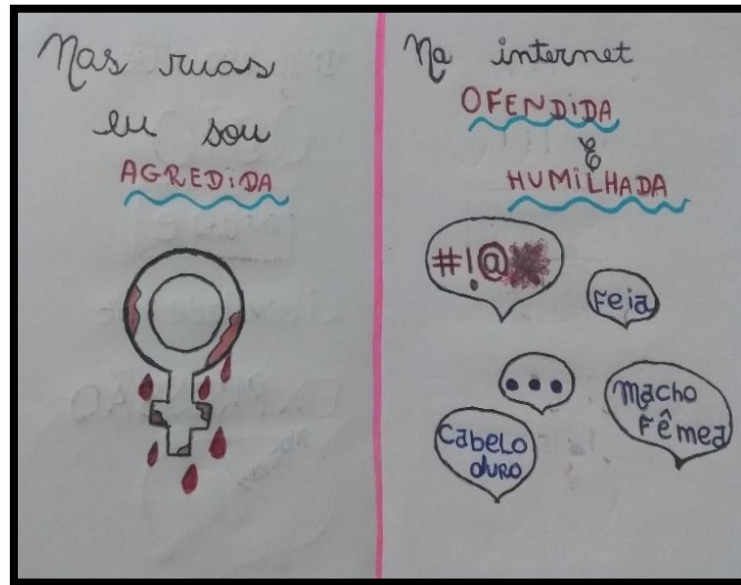 Nas ruas
eu sou
AGREDiDA
Na internet
OFENDiDA
E
HUMiLHADA
#!@
Feia
...
Macho
Fêmea
Cabelo
duro